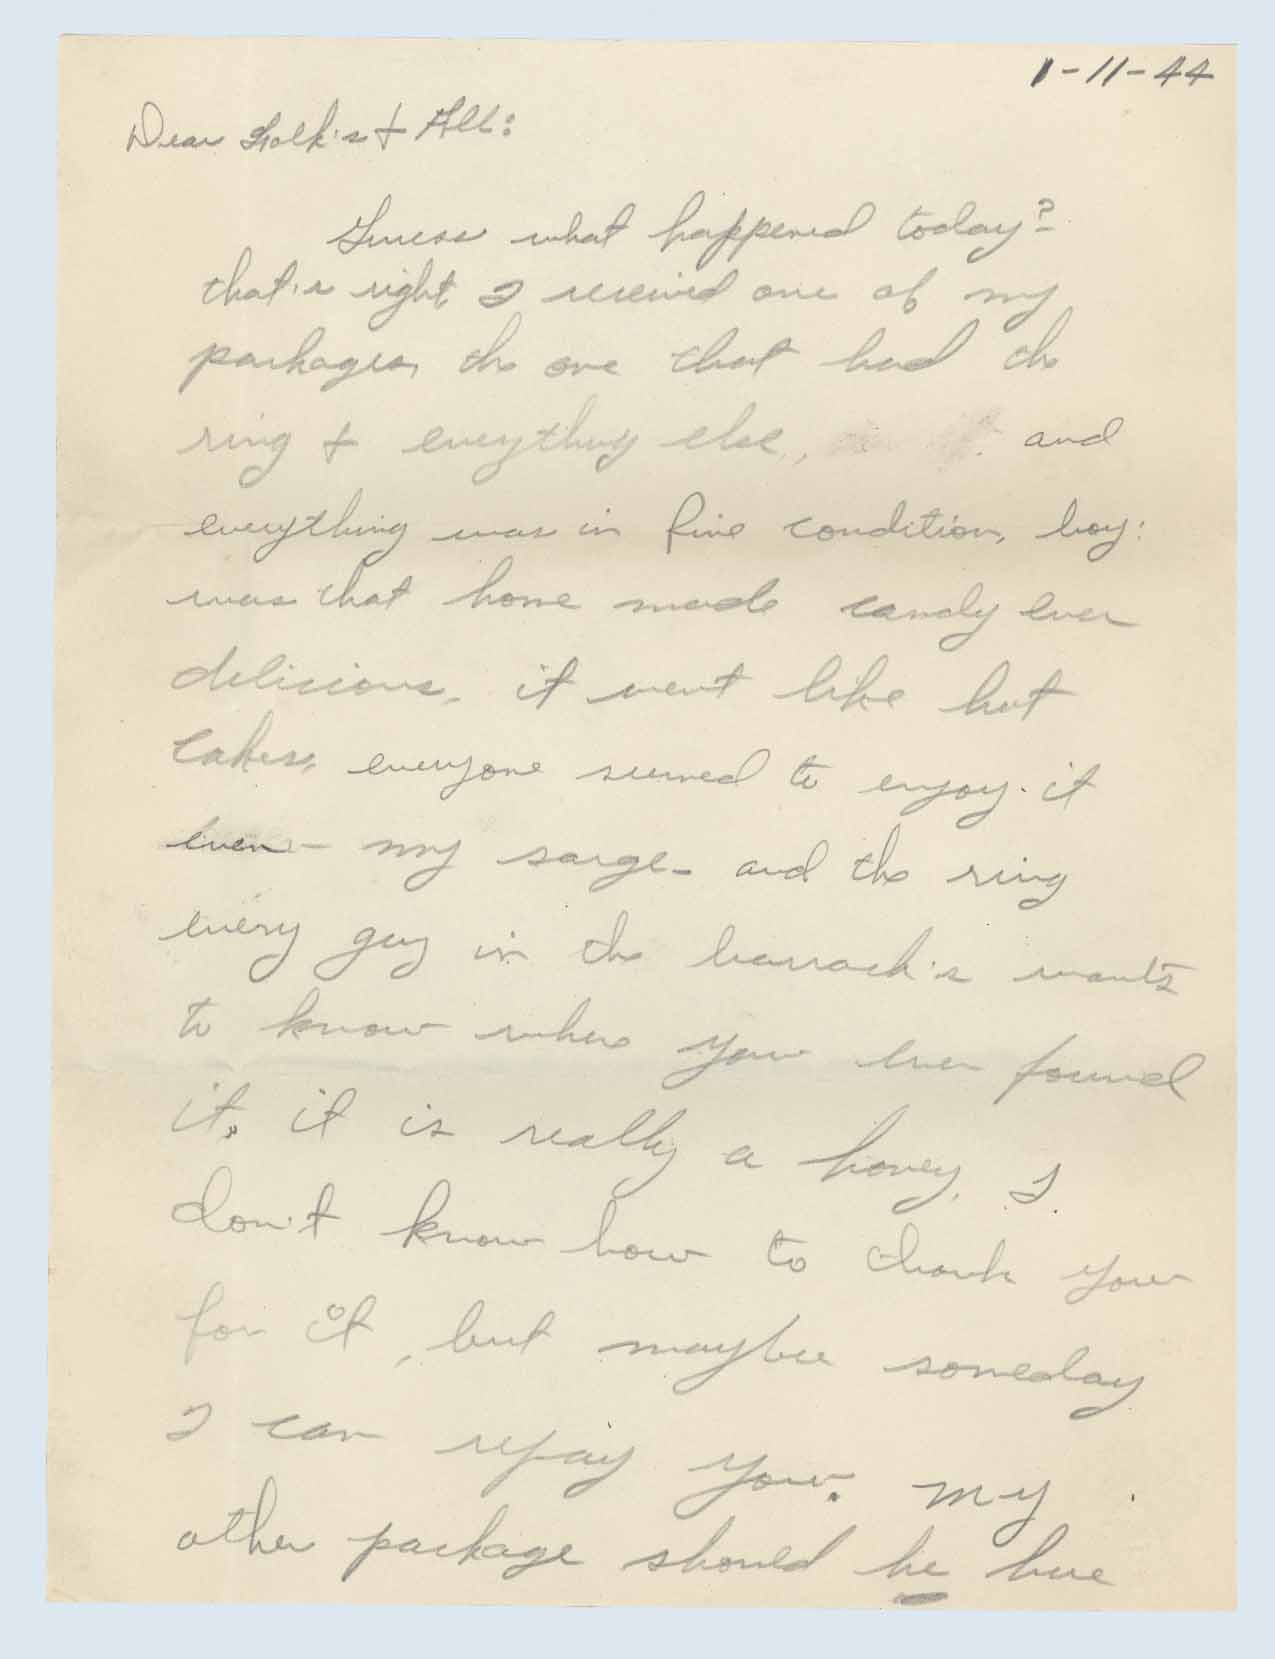 1-11-44
Dear Folk's & All:
Guess what happened today?
that's right I received one of my
packages, the one that had the
ring & everything else, and
everything was in fine condition, boy:
was that home made candy ever
delicious, it went like hot
cakes, everyone seemed to enjoy it
even - my sarge - and the ring
every guy in the barrack's wants
to know where you ever found
it, it is really a honey, I
don't know how to thank you
for it, but maybee someday
I can repay you. My
other package should be here